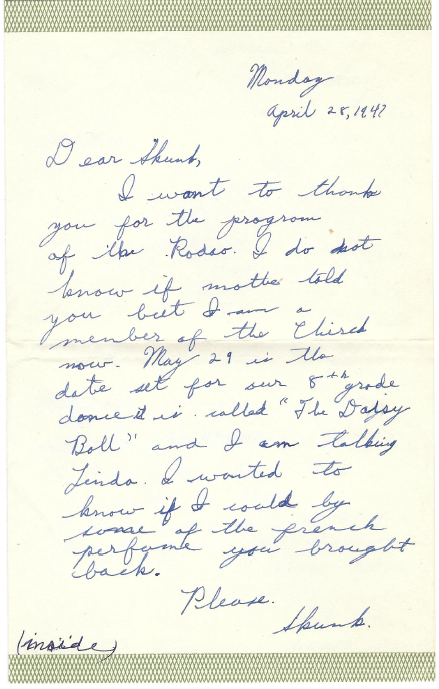 Monday
April 28, 1947
Dear Skunk,
I want to thank
you for the program
of the Rodao. I do not
know if mothe told
you but I am a
member of the Chirch
now. May 29 is the
date set for our 8th grade
dance it is called "The Daisy
Ball" and I am talking
Linda. I wanted to
know if I could by
some of the french
perfume you brought
back.
Please.
Skunk.
(inside)